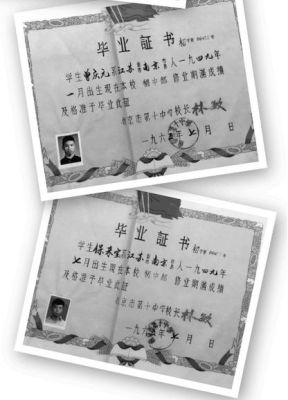 毕业証书
学生曾庆元系江苏省南京市人一九四九年
一月出生现在本校初中部修业期满成绩
及格准予毕业此証
南京市第十中学校长林敏
一九六五年七月 日
毕业証书
学生 系江苏省南京市人一九四九年
七月出生现在本校初中部修业期满成绩
及格准予毕业此証
南京市第十中学校长林敏
一九六五年七月 日